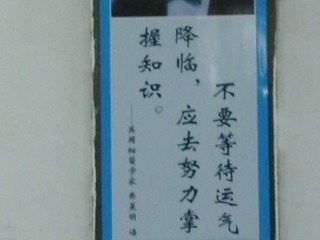 不要等待运气
降临，应去努力掌
握知识。
——英国细菌学家 弗莱明 语